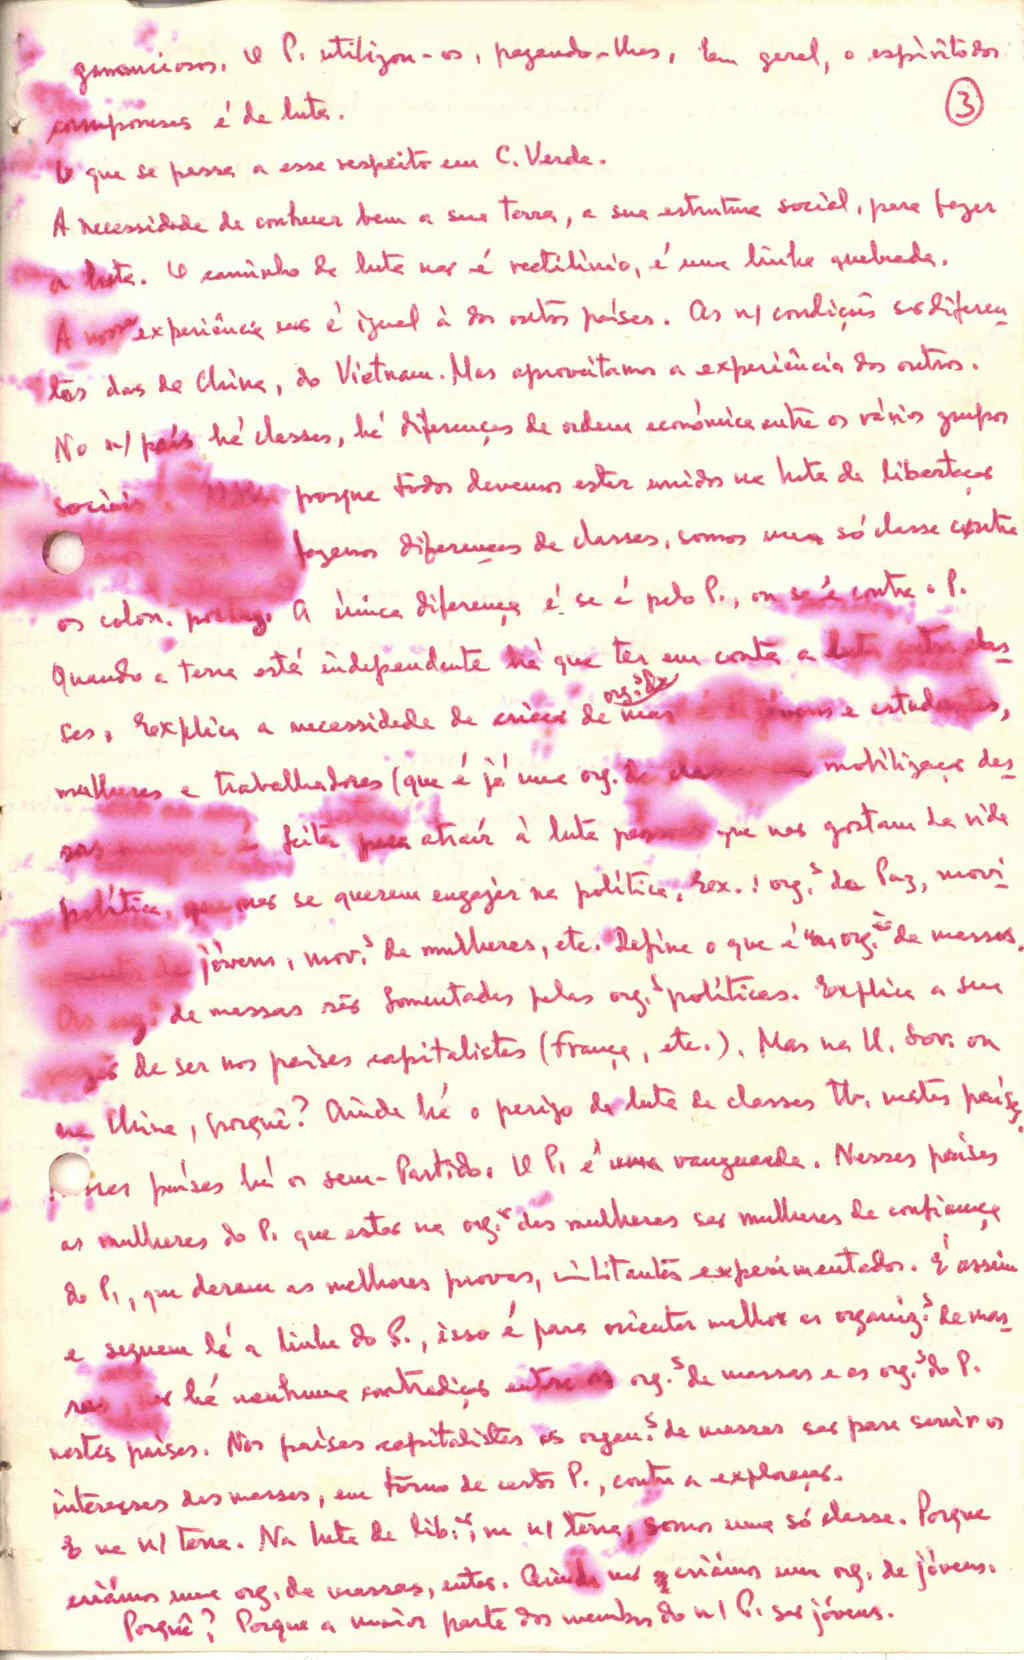 gananciosos. O P. utilizou-os, pagando-lhes, Em geral, o espírito dos
camponeses é de luta.
3
O que se passa a esse respeito em C. Verde.
A necessidade de conhecer bem a sua terra, a sua estrutura social, para fazer
a luta. O caminho da luta não é rectilínio, é uma linha quebrada.
A nossa experiência não é igual à dos outros países. As n/ condições são diferen
tes das da China, do Vietnam. Mas aproveitamos a experiência dos outros.
No n/ país há classes, há diferenças de ordem económica entre os vários grupos
sociais. porque todos devemos estar unidos na luta de libertação
fazemos diferenças de classes, somos uma só classe contra
os colon. portug. A única diferença é se é pelo P., ou se é contra o P.
Quando a terra está independente há que ter em conta a luta entre clas
ses. Explica a necessidade de criar org.s de mas jóvens e estudantes,
mulheres e trabalhadores (que é já uma org. de mobilização das
sas é feita para atrair à luta pessoas que não gostam da vida
política, que não se querem engajar na política, Ex.: org.s da Paz, movi
mentos de jóvens, mov.s de mulheres, etc. Define o que é "uma org.ão de massas.
As org.s de massas são fomentadas pelas org.s políticas. Explica a sua
razão de ser nos países capitalistas (França, etc.). Mas na U. Sov. ou
na China, porquê? Ainda há o perigo da luta de classes tb. nestes países.
países há os sem-Partido. O P. é uma vanguarda. Nesses países
as mulheres do P. que estão na org.ão das mulheres são mulheres de confiança
do P., que deram as melhores provas, militantes experimentados. É assim
e seguem lá a linha do P., isso é para orientar melhor as organiz.s de mas
sas, não há nenhuma contradição entre as org.s de massas e as org.s do P.
nestes países. Nos países capitalistas as organ.s de massas são para servir os
interesses das massas, em torno de certos P., contra a exploração.
E na n/ terra. Na luta de lib.ão, na n/ terra, somos uma só classe. Porque
criámos uma org. de massas, então. Ainda não criámos uma org. de jóvens.
Porquê? Porque a maior parte dos membros do n/ P. são jóvens.